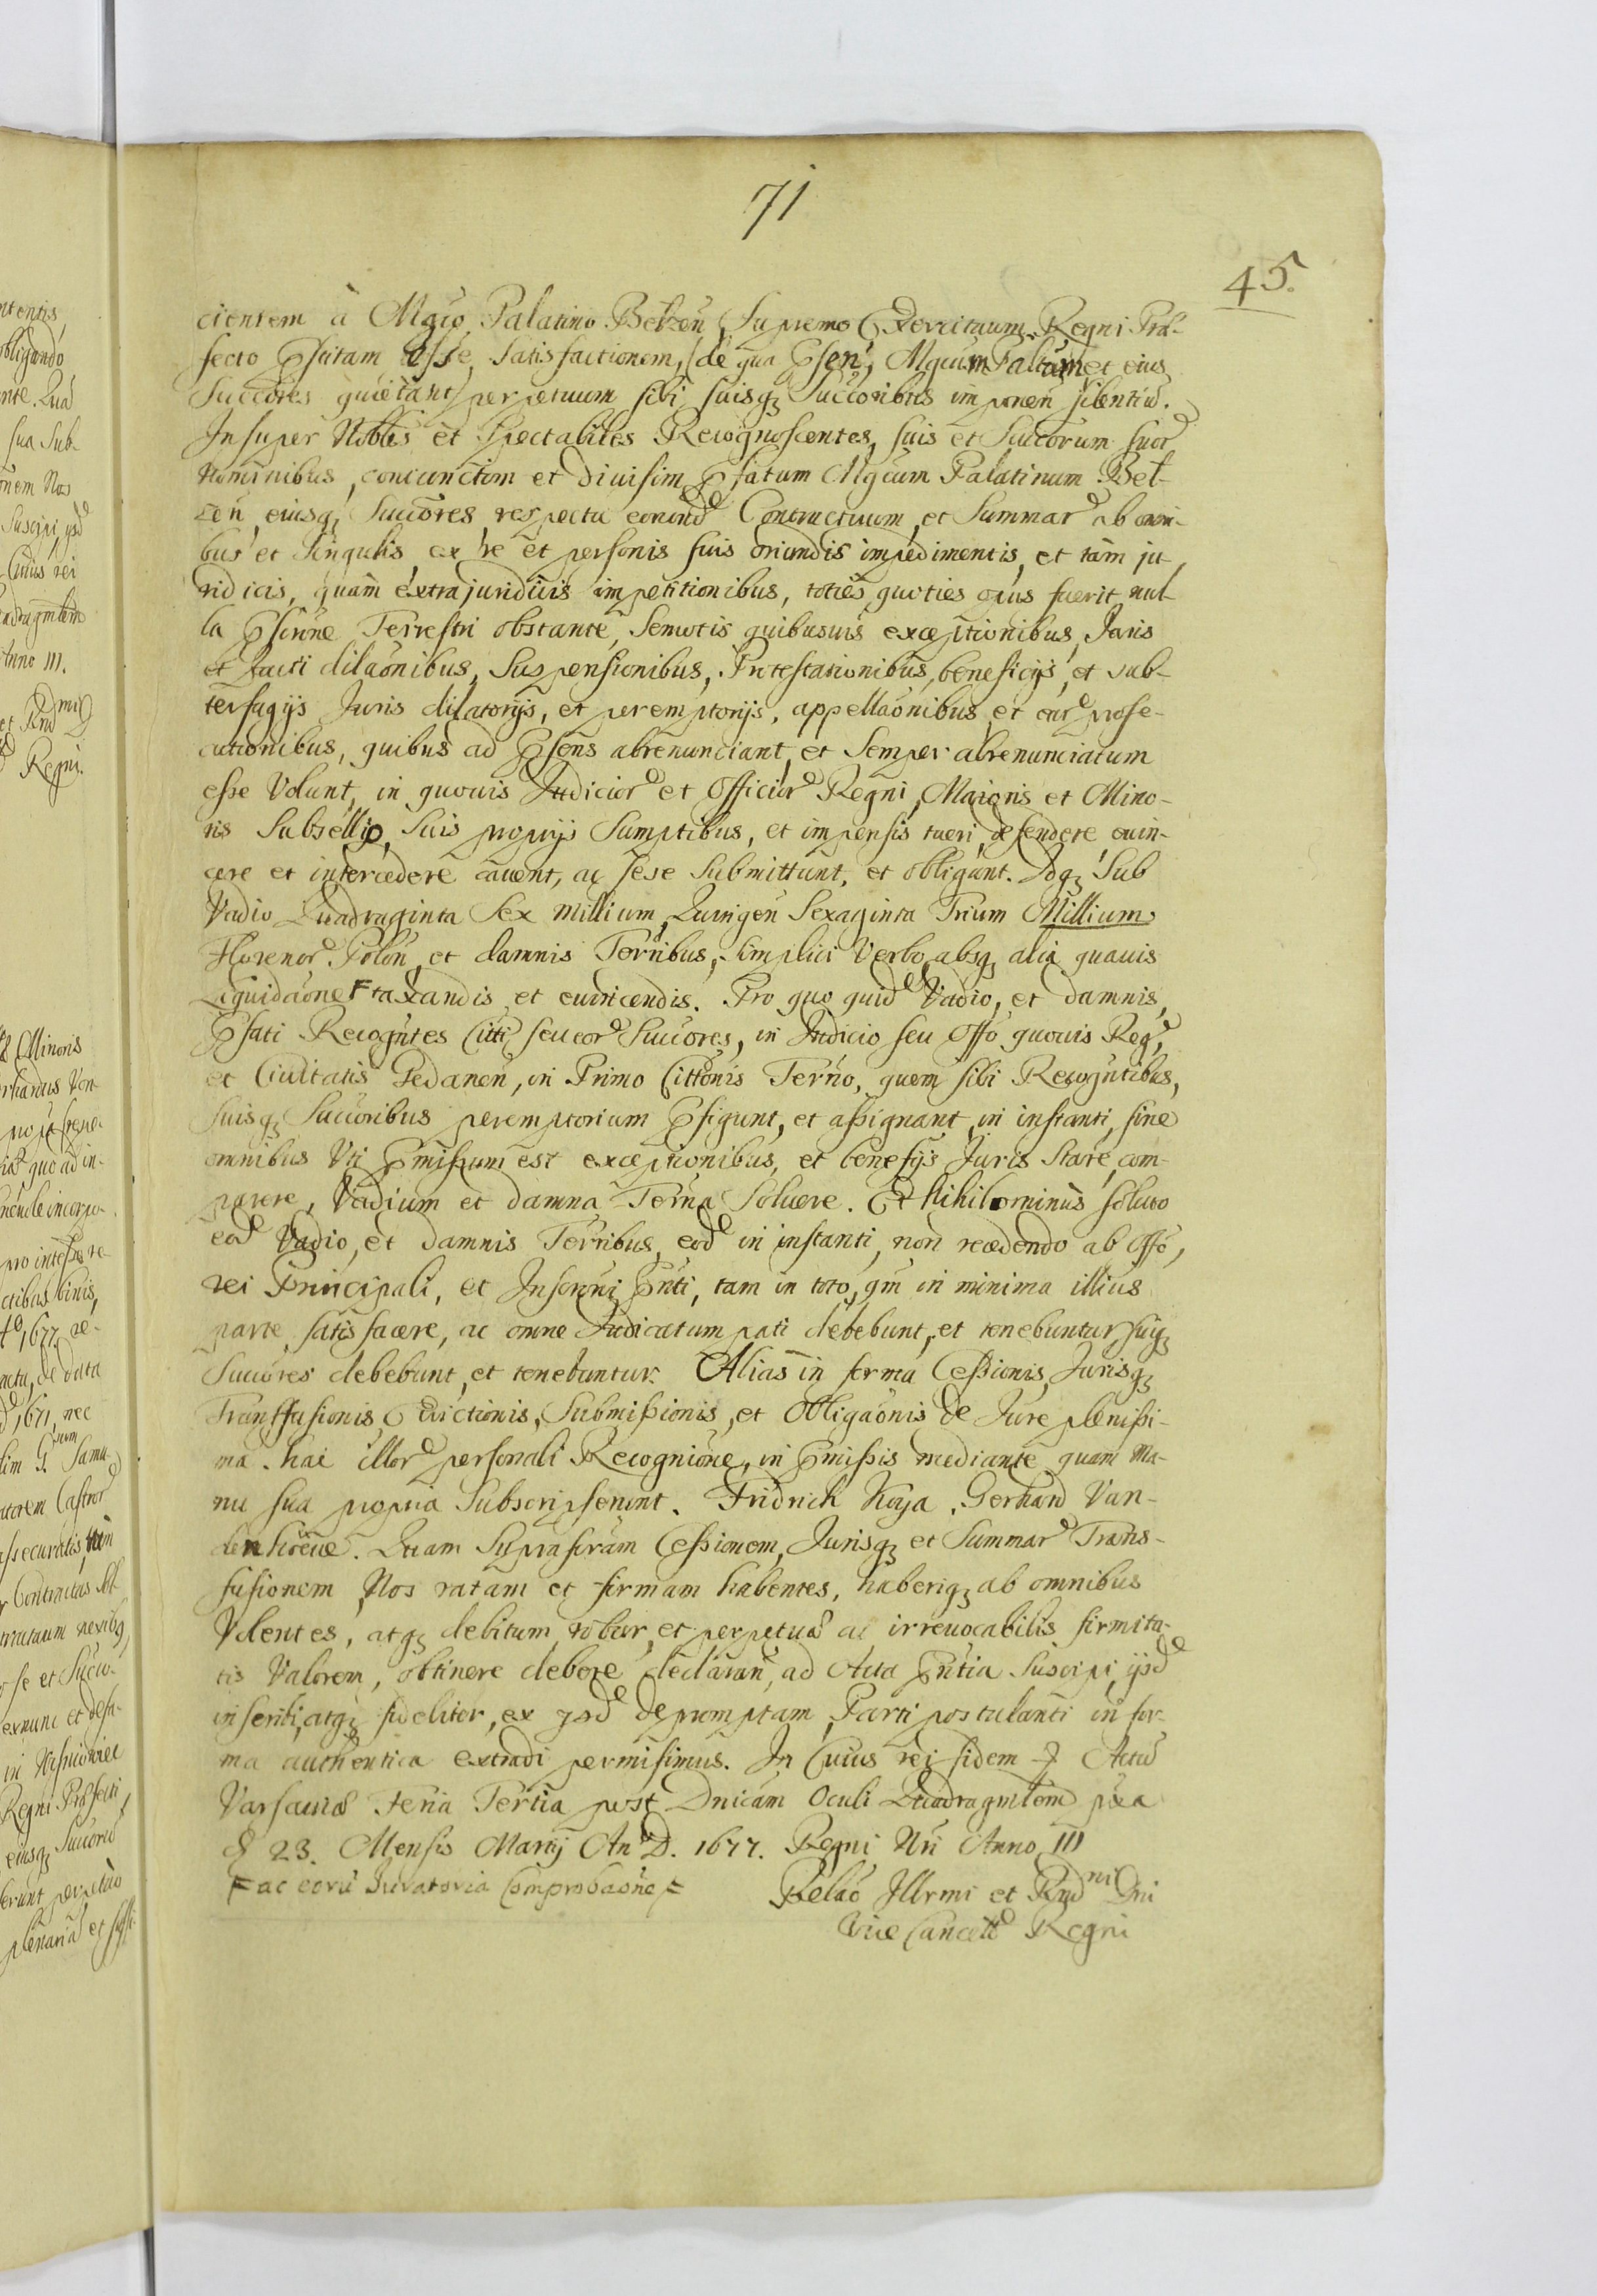 71
45.
cientem à Mgco Palatino Belzen Supremo Exercituum Regni Præ-
fecto præstitam esse Satisfactionem, de qua præsen, Mgcum Paltum et eius
Succores quietant, perpetuum sibi suisq Succoribus imponen silentiu.
Insuper Nobles et Spectabiles Recognoscentes, suis et Succorum suor
nominibus, coniunctim et diuisim præfatum Mgcum Palatinum Bel-
zen eiusq Succores respectu eorund Contractuum, et Summar ab omni-
bus et singulis, ex re et personis suis oriundis impedimentis, et tam ju-
ridicis, quam extrajuridicis impetitionibus, toties quoties opus fuerit nul-
la præscrine Terrestri obstante, Semotis quibusuis exceptionibus, Juris
et facti dilaonibus, Suspensionibus, Protestationibus, beneficijs, et sub-
terfugijs Juris dilatorijs, et peremptorijs, appellaonibus et ear prose-
cutionibus, quibus ad præsens abrenunciant, et Semper abrenunciatum
esse Volunt, in quouis Iudicior et Officior Regni, Maioris et Mino-
ris Subsellio, Suis proprijs Sumptibus, et impensis tueri, defendere, euin-
cere et intercedere cauent, ac sese Submittunt, et obligant. Idq Sub
Vadio Quadraginta Sex Millium Quingen Sexaginta Trium Millium
Florenor Polon, et damnis Terribus, simplici Verbo, absq alia quauis
Liquidaone F taxandis et euincendis. Pro quo quid Vadio, et damnis,
Præfati Recogntes Citti, seu eor Succores, in Iudicio seu Offo quouis Reg,
et Ciuitatis Gedanen, in Primo Cittonis Terno, quem sibi Recogntibus,
suisq Succoribus peremptorium præfigunt, et assignant, in instanti, sine
omnibus Vti præmissum est exceptionibus, et benefijs Juris Stare, com-
parere, Vadium et damna Terna Soluere. Et Nihilominus soluto
eod Vadio, et damnis Terribus, eod in instanti, non recedendo ab Offo,
rei Principali, et Inscronni Pnti, tam in toto, qm in minima illius
parte satisfacere, ac omne Iudicatum pati debebunt, et tenebuntur, suiq
Succores debebunt, et tenebuntur. Alias in forma Cessionis, Jurisq
Transfusionis, Euictionis, Submissionis, et Obligaonis de Jure plenissi-
ma. hac illor personali Recognione, in præmissis mediante, quam Ma-
nu sua propria Subscripserunt. Fridrich Koja, Gerhard Van-
denhoeue. Quam Suprascram Cessionem, Jurisq et Summar Trans-
fusionem, Nos ratam et firmam habentes, haberiq ab omnibus
Volentes, atq debitum robur, et perpetuæ ac irreuocabilis firmita-
tis Valorem, obtinere debere declaran, ad Acta Pntia Suscipi, ijsd
inscribi, atq fideliter, ex ijsd depromptam, Parti postulanti in for-
ma authentica extradi permisimus. In Cuius rei fidem Actu
Varsauiæ Feria Tertia post Dnicam Oculi Quadragmlem pxa
d 23. Mensis Martij An D. 1677. Regni Nri Anno III
F ac eoru Iuratoria Comprobaone F
Relao Illrmi et Rndmi Dni
Vice Cancell Regni